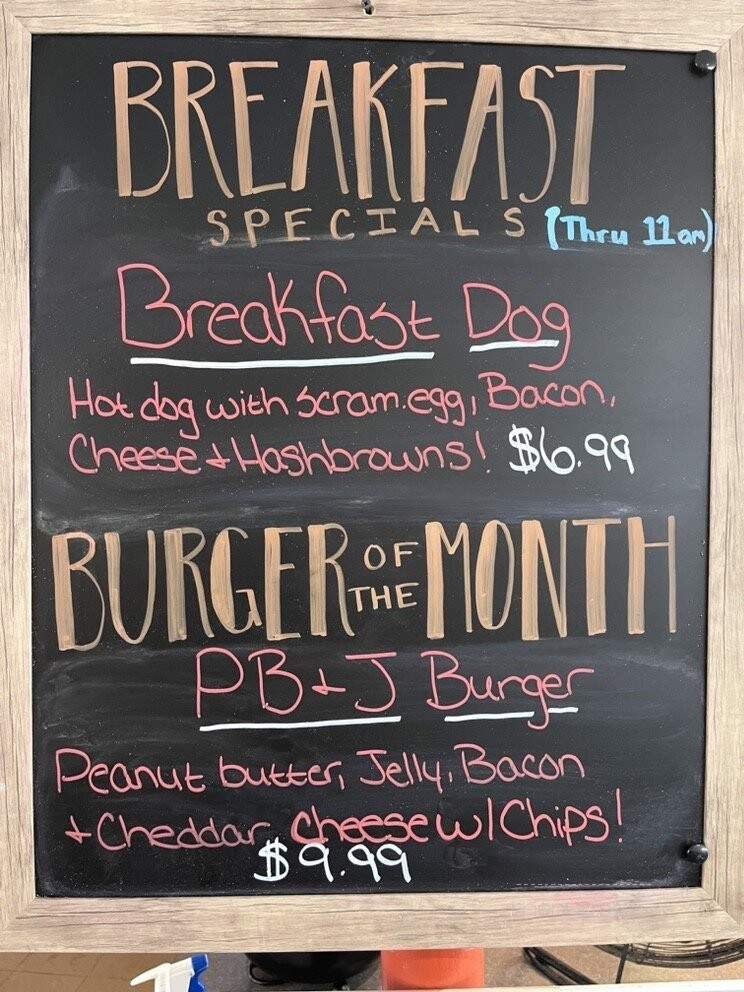 BREAKFAST
SPECIALS (Thru 11am)
Breakfast Dog
Hot dog with scram.egg, Bacon,
Cheese + Hashbrowns! $6.99
BURGER OF THE MONTH
PB+J Burger
Peanut butter, Jelly, Bacon
+ Cheddar Cheese w/ Chips!
$9.99